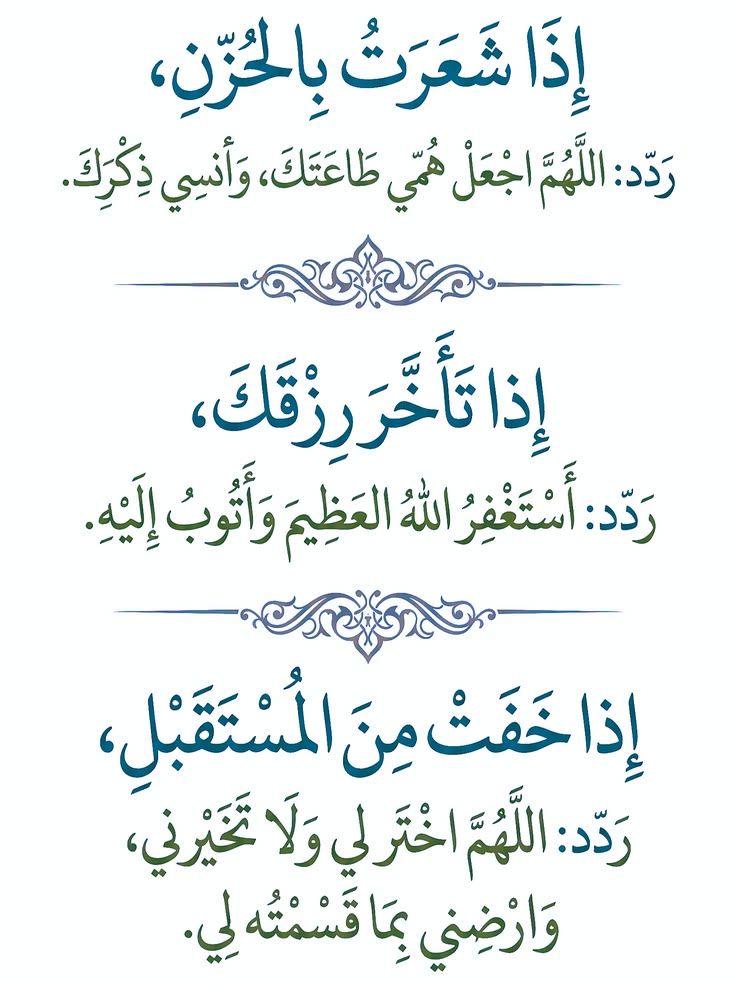 إِذَا شَعَرَتُ بِالحُزّنِ،
رَدّد: اللَّهُمَّ اجْعَلْ هُمّي طَاعَتَكَ، وَأنسِي ذِكْرَكَ.
إِذا تَأَخَّرَ رِزْقَكَ،
رَدّد: أَسْتَغْفِرُ اللهُ العَظِيمَ وَأَتُوبُ إِلَيْهِ.
إِذا خَفَتْ مِنَ المُسْتَقَبْلِ،
رَدّد: اللَّهُمَّ اخْتَر لي وَلَا تَخَيْرني،
وَارْضِني بِمَا قَسْمْتُه لِي.